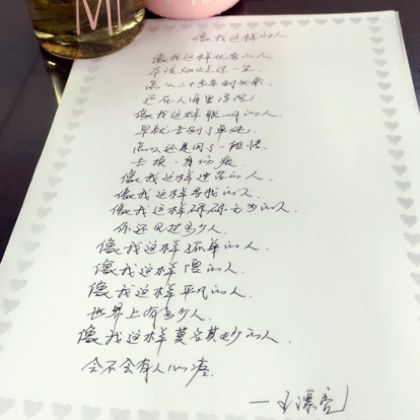 MI
像我这样的人
像我这样优秀的人
本该灿烂过一生
怎么二十多年到头来
还在人海里浮沉
像我这样聪明的人
早就告别了单纯
怎么还是用了一段情
去换一身伤痕
像我这样迷茫的人
像我这样寻找的人
像我这样碌碌无为的人
你还见过多少人
像我这样孤单的人
像我这样傻的人
像我这样平凡的人
世界上有多少人
像我这样莫名其妙的人
会不会有人心疼
—王漂亮